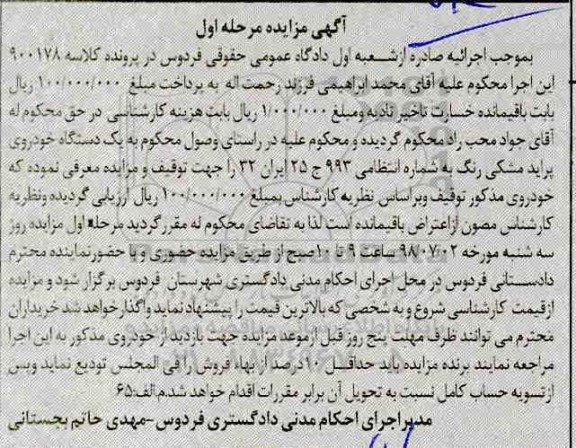 آگهی مزایده مرحله اول
بموجب اجرائیه صادره ازشعبه اول دادگاه عمومی حقوقی فردوس در پرونده کلاسه ۹۰۰۱۷۸
این اجرا محکوم علیه آقای محمد ابراهیمی فرزند رحمت اله به پرداخت مبلغ ۱۰۰/۰۰۰/۰۰۰ ریال
بابت باقیمانده خسارت تاخیر تادیه ومبلغ ۱/۰۰۰/۰۰۰ ریال بابت هزینه کارشناسی در حق محکوم له
آقای جواد محب راد محکوم گردیده و محکوم علیه در راستای وصول محکوم به یک دستگاه خودروی
پراید مشکی رنگ به شماره انتظامی ۹۹۳ ج ۲۵ ایران ۳۲ را جهت توقیف و مزایده معرفی نموده که
خودروی مذکور توقیف وبراساس نظریه کارشناس بمبلغ ۱۰۰/۰۰۰/۰۰۰ ریال ارزیابی گردیده ونظریه
کارشناس مصون ازاعتراض باقیمانده است لذا به تقاضای محکوم له مقرر گردید مرحله اول مزایده روز
سه شنبه مورخه ۹۸/۰۷/۰۲ ساعت ۹ تا ۱۰ صبح از طریق مزایده حضوری و با حضور نماینده محترم
دادستانی فردوس در محل اجرای احکام مدنی دادگستری شهرستان فردوس برگزار شود و مزایده
از قیمت کارشناسی شروع و به شخصی که بالاترین قیمت را پیشنهاد نماید واگذار خواهد شد خریداران
محترم می توانند ظرف مهلت پنج روز قبل ازموعد مزایده جهت بازدید از خودروی مذکور به این اجرا
مراجعه نمایند برنده مزایده باید حداقل ۱۰ درصد از بهاء فروش را فی المجلس تودیع نماید وپس
از تسویه حساب کامل نسبت به تحویل آن برابر مقررات اقدام خواهد شد.م.الف:۶۵
مدیر اجرای احکام مدنی دادگستری فردوس-مهدی حاتم بجستانی